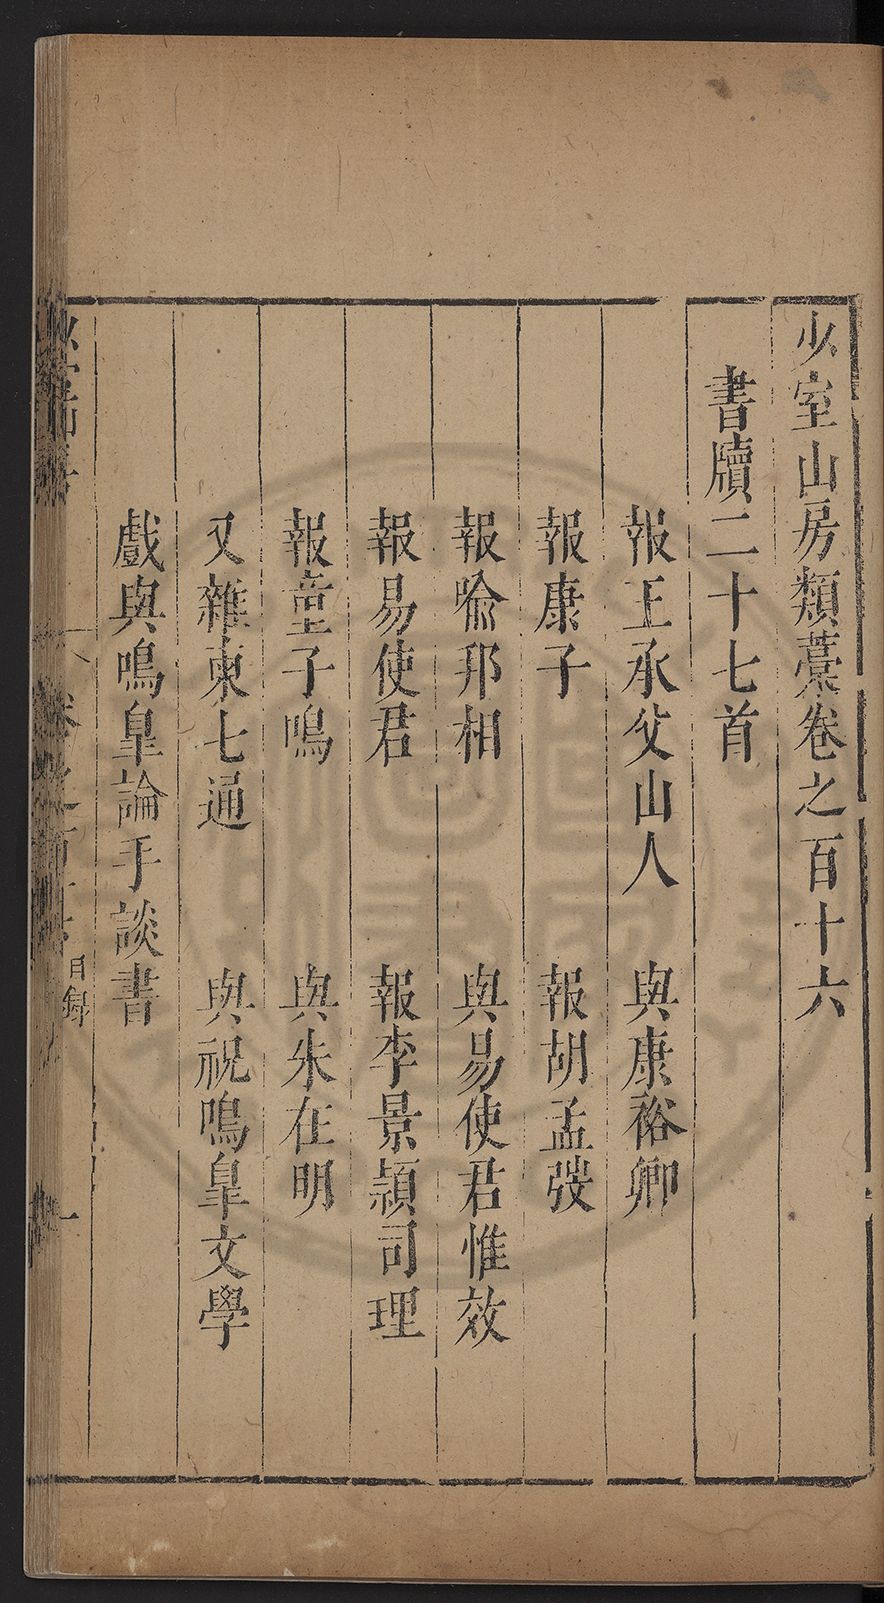 少室山房類藁卷之百十六
書牘二十七首
報王承父山人 與康裕卿
報康子 報胡孟弢
報喻邦相 與易使君惟效
報易使君 報李景頴司理
報童子鳴 與朱在明
又雜柬七通 與祝鳴臯文學
戲與鳴臯論手談書
目録
一